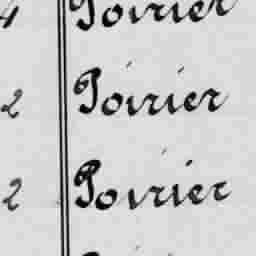 4 Poirier
2 Poirier
2 Poirier